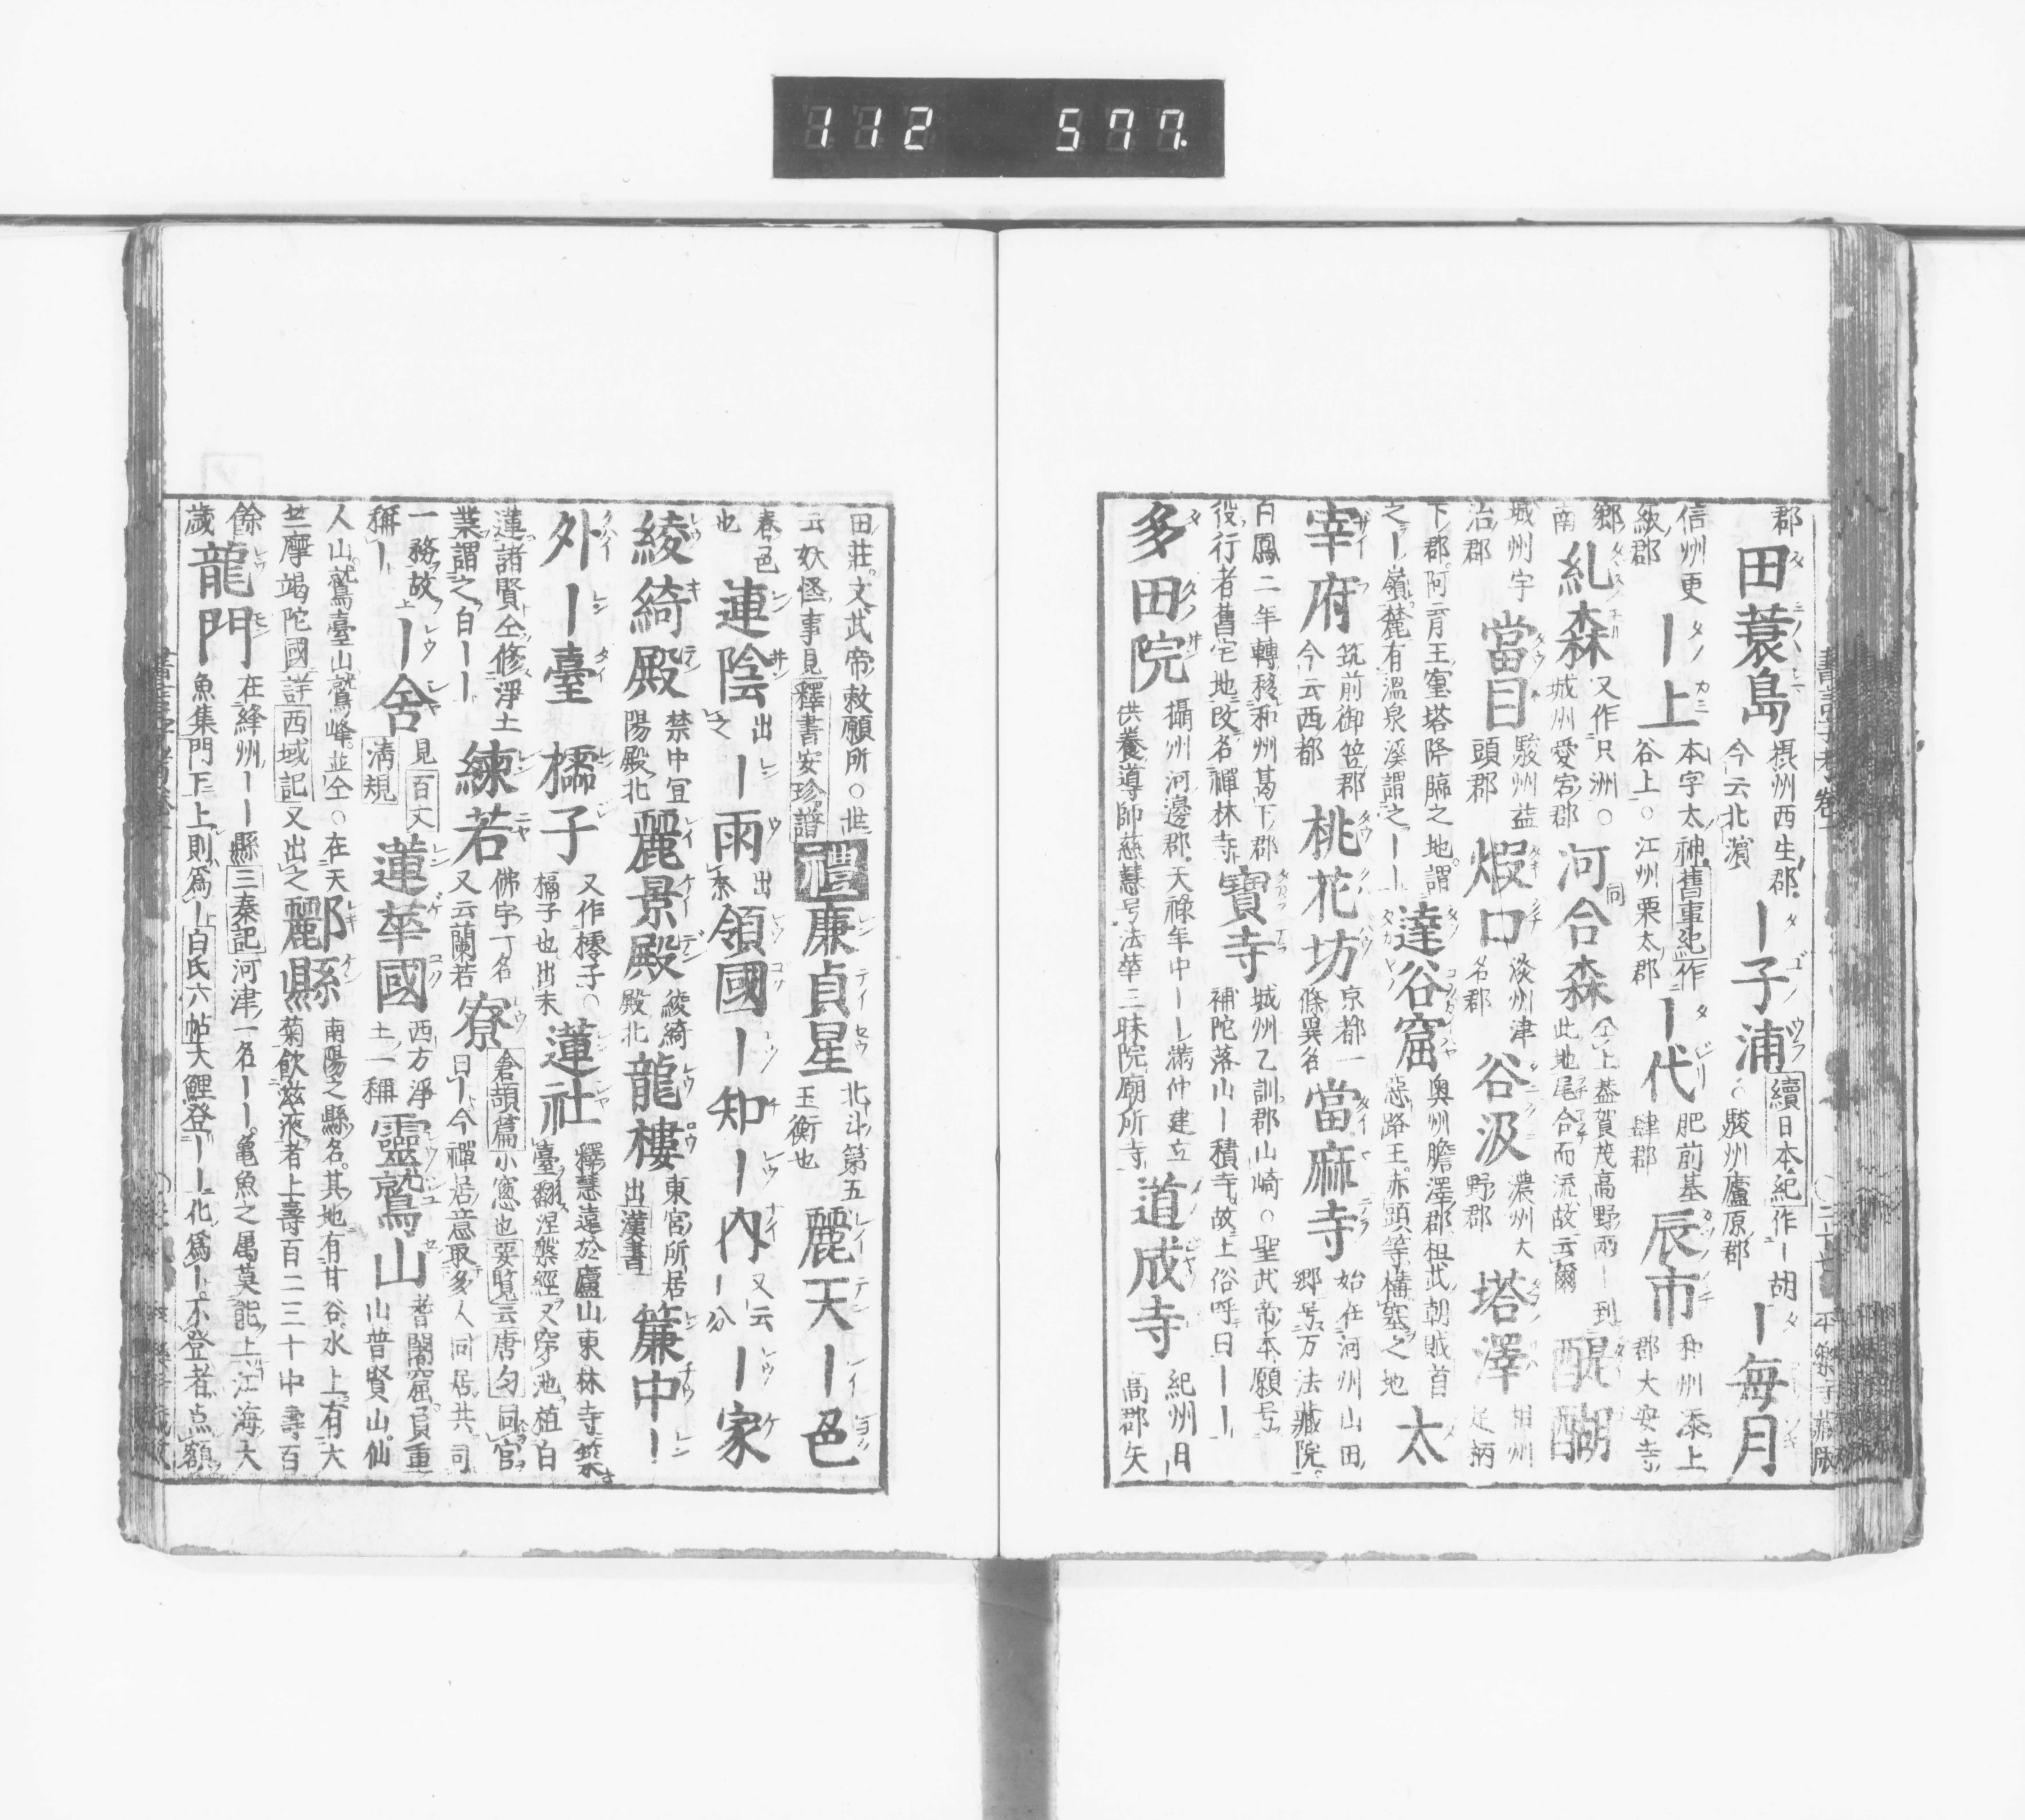 112 577.
郡 田蓑島 摂州西生郡 今云北濱 ー子浦 續日本紀作ー胡 駿州廬原郡 ー毎月
信州更級郡 ー上 本字太神舊事紀作谷上○江州栗太郡 ー代 肥前基肆郡 辰市 和州添上郡大安寺
郷南 糺森 又作只洲○城州愛宕郡 河合森 仝上蓋賀茂高野両ー到此地尾合而流故云爾 醍醐
城州宇治郡 當目 駿州益頭郡 煆口 淡州津名郡 谷汲 濃州大野郡 塔澤 相州足柄
下郡阿育王窒塔降臨之地謂之ー嶺麓有溫泉溪謂之ーー 達谷窟 奥州膽澤郡祖武朝賊首惡路王赤頭等構塞之地 太
宰府 筑前御笠郡今云西都 桃花坊 京都一條異名 當麻寺 始在河州山田郷号万法藏院
白鳳二年轉移和州葛下郡役行者舊宅地改名禪林寺 寶寺 城州乙訓郡山崎○聖武帝本願号補陀落山ー積寺故上俗呼曰ーー
多田院 攝州河邊郡天祿年中ーー滿仲建立供養導師慈慧号法華三昧院廟所寺 道成寺 紀州日高郡矢
田莊文武帝敕願所○世云妖怪事見釋書安珍譜 禮 廉貞星 北斗第五玉衡也 麗天 ー色
春色也 蓮陰 出之 ー雨 出 領國 ー知 ー内 又云ー分 ー家
綾綺殿 禁中宜陽殿北 麗景殿 綾綺殿北 龍樓 東宮所居出漢書 簾中 ー
外 ー臺 橘子 又作樗子○槅子也出末 蓮社 釋慧遠於廬山東林寺築臺翻涅槃經又穿池植白
蓮諸賢仝修淨土業謂之白ーー 練若 佛宇丁名又云蘭若 寮 倉頡篇小窓也要覧云唐勾同官曰ー今禪居意取多人同居共司
一務故稱ー ー舍 見百丈清規 蓮華國 西方淨土一稱 靈鷲山 耆闍窟員重山普賢山仙
人山鷲臺山鷲峰並仝○在天竺摩竭陀國詳西域記又出之 酈縣 南陽之縣名其地有甘谷水上有大菊飲茲液者上壽百二三十中壽百
餘歲 龍門 在絳州ーー縣三秦記河津一名ーー亀魚之属莫能上江海大魚集門下上則爲ー白氏六帖大鯉登ーー化爲ー不登者点額